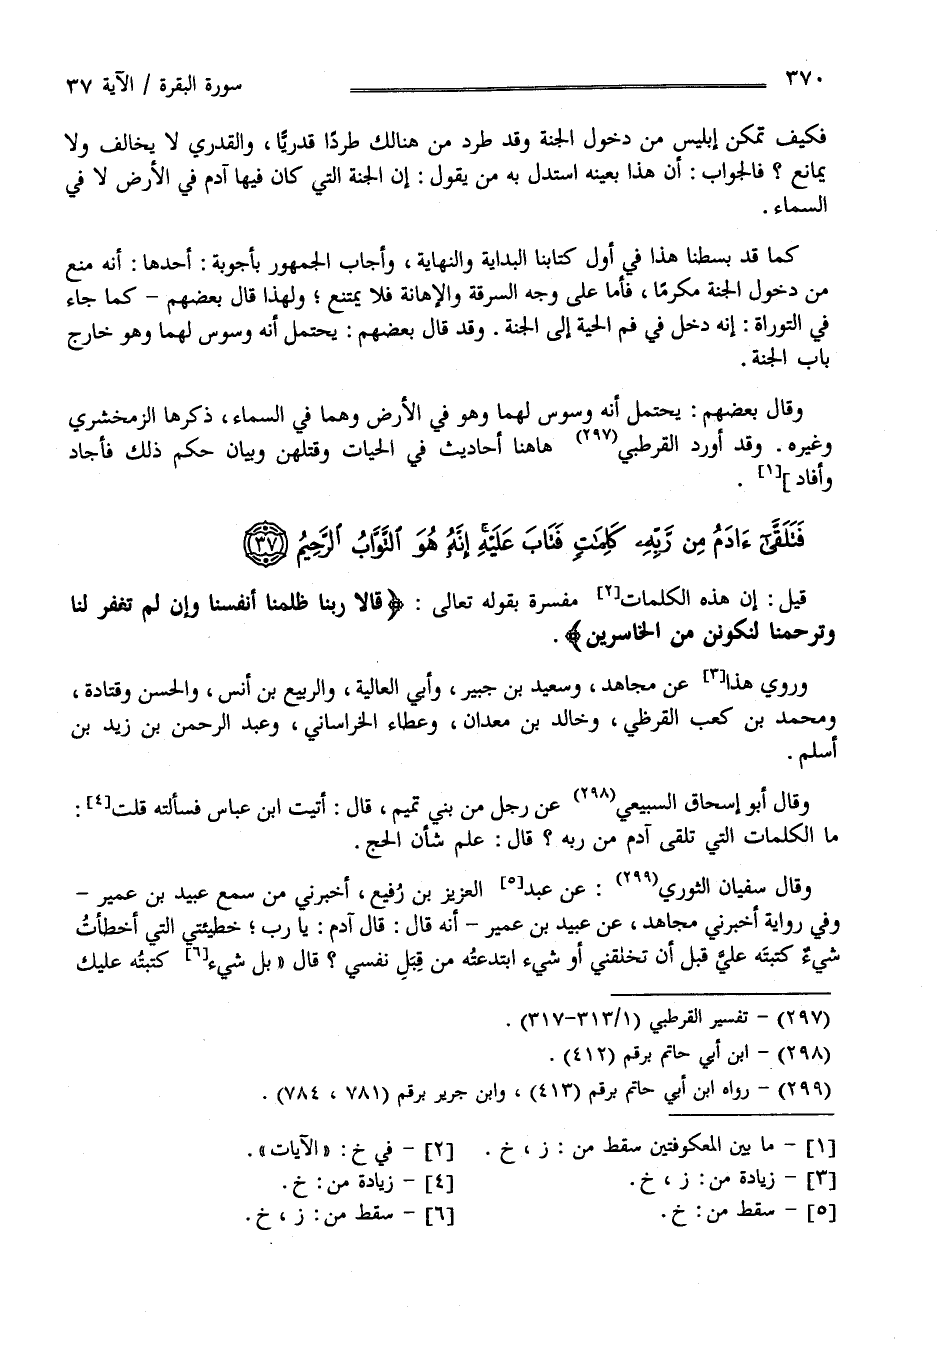 ٣٧٠
سورة البقرة / الآية ٣٧
فكيف تمكن إبليس من دخول الجنة وقد طرد من هنالك طردًا قدريًّا ، والقدري لا يخالف ولا
يمانع ؟ فالجواب : أن هذا بعينه استدل به من يقول : إن الجنة التي كان فيها آدم في الأرض لا في
السماء .
كما قد بسطنا هذا في أول كتابنا البداية والنهاية ، وأجاب الجمهور بأجوبة : أحدها : أنه منع
من دخول الجنة مكرمًا ، فأما على وجه السرقة والإهانة فلا يمتنع ؛ ولهذا قال بعضهم – كما جاء
في التوراة : إنه دخل في فم الحية إلى الجنة . وقد قال بعضهم : يحتمل أنه وسوس لهما وهو خارج
باب الجنة .
وقال بعضهم : يحتمل أنه وسوس لهما وهو في الأرض وهما في السماء ، ذكرها الزمخشري
وغيره . وقد أورد القرطبي(٢٩٧) هاهنا أحاديث في الحيات وقتلهن وبيان حكم ذلك فأجاد
وأفاد ][١] .
فَتَلَقَّىٰٓ ءَادَمُ مِن رَّبِّهِۦ كَلِمَٰتٍ فَتَابَ عَلَيْهِ ۚ إِنَّهُۥ هُوَ ٱلتَّوَّابُ ٱلرَّحِيمُ ٣٧
قيل : إن هذه الكلمات[٢] مفسرة بقوله تعالى : ﴿ قالا ربنا ظلمنا أنفسنا وإن لم تغفر لنا
وترحمنا لنكونن من الخاسرين ﴾ .
وروي هذا[٣] عن مجاهد ، وسعيد بن جبير ، وأبي العالية ، والربيع بن أنس ، والحسن وقتادة ،
ومحمد بن كعب القرظي ، وخالد بن معدان ، وعطاء الخراساني ، وعبد الرحمن بن زيد بن
أسلم .
وقال أبو إسحاق السبيعي(٢٩٨) عن رجل من بني تميم ، قال : أتيت ابن عباس فسألته قلت[٤] :
ما الكلمات التي تلقى آدم من ربه ؟ قال : علم شأن الحج .
وقال سفيان الثوري(٢٩٩) : عن عبد[٥] العزيز بن رُفيع ، أخبرني من سمع عبيد بن عمير –
وفي رواية أخبرني مجاهد ، عن عبيد بن عمير – أنه قال : قال آدم : يا رب ؛ خطيئتي التي أخطأتُ
شيءٌ كتبتَه عليَّ قبل أن تخلقني أو شيء ابتدعتُه من قِبَلِ نفسي ؟ قال « بل شيء[٦] كتبتُه عليك
(٢٩٧) – تفسير القرطبي (٣١٣/١–٣١٧) .
(٢٩٨) – ابن أبي حاتم برقم (٤١٢) .
(٢٩٩) – رواه ابن أبي حاتم برقم (٤١٣) ، وابن جرير برقم (٧٨١ ، ٧٨٤) .
[١] – ما بين المعكوفتين سقط من : ز ، خ .
[٢] – في خ : « الآيات » .
[٣] – زيادة من : ز ، خ .
[٤] – زيادة من : خ .
[٥] – سقط من : خ .
[٦] – سقط من : ز ، خ .